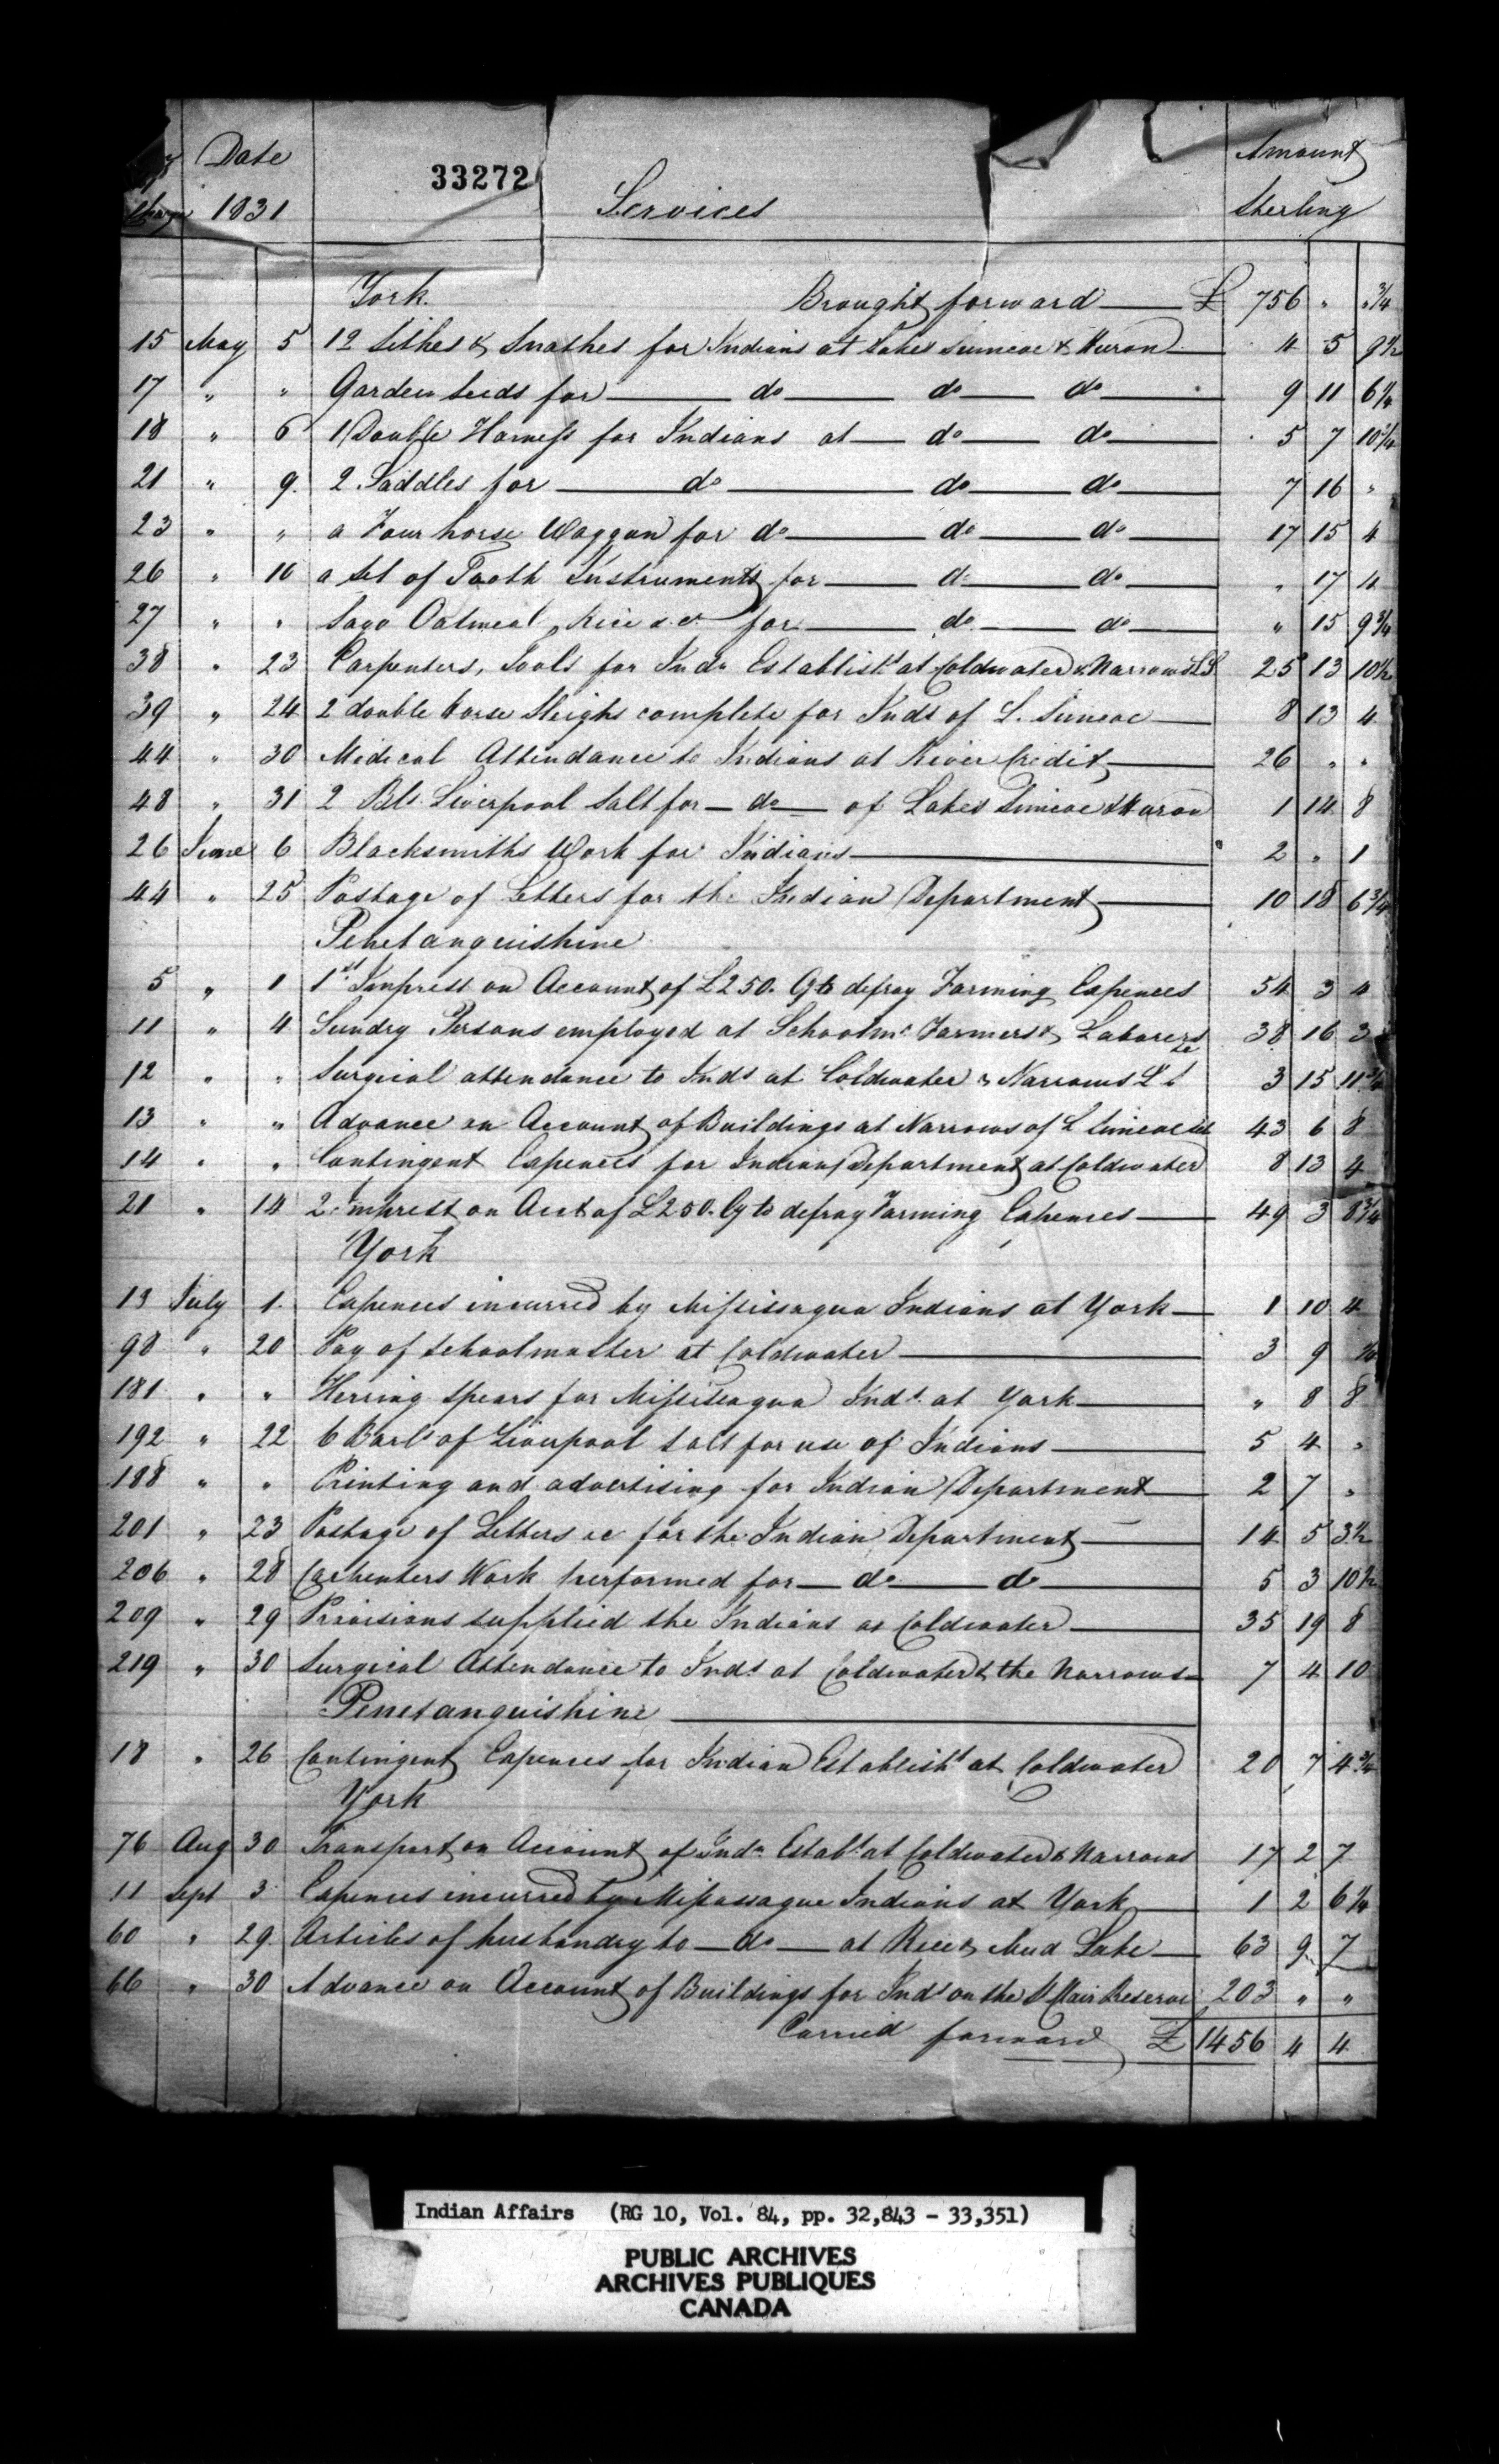 Date Amount
33272
1831 Services Sterling
York. Brought forward £ 756 " " ¾
15 May 5 12 Sithes & Snathes for Indians at Lakes Simcoe & Huron 4 5 9½
17 " " Garden Seeds for do do do 9 11 6¼
18 " 6 1 Double Harness for Indians at do do 5 7 10¾
21 " 9 2 Saddles for do do do 7 16 "
23 " " a Four horse Waggon for do do do 17 15 4
26 " 10 a Set of Tooth Instruments for do do " 17 4
27 " " Sago Oatmeal, Rice &c for do do " 15 9¾
38 " 23 Carpenters, Tools for Indn Establisht at Coldwater & Narrows LS 25 13 10½
39 " 24 2 double Horse Sleighs complete for Inds of L. Simcoe 8 13 4
44 " 30 Medical Attendance to Indians at River Credit 26 " "
48 " 31 2 Bls. Liverpool Salt for do of Lakes Simcoe & Huron 1 14 8
26 June 6 Blacksmiths Work for Indians 2 " 1
44 " 25 Postage of Letters for the Indian Department 10 18 6¾
Penetanguishine
5 " 1 1st Imprest on Account of £250. Cy to defray Farming Expences 54 3 4
11 " 4 Sundry Persons employed at Schoolmr Farmers & Laborers &c 38 16 3
12 " " Surgical attendance to Inds at Coldwater & Narrows L S 3 15 11¾
13 " " Advance on Account of Buildings at Narrows of L Simcoe 43 6 8
14 " " Contingent Expences for Indian Department at Coldwater 8 13 4
21 " 14 2 Imprest on Acct of £250. Cy to defray Farming Expences 49 3 8¾
York
13 July 1 Expences incurred by Missisagua Indians at York 1 10 4
98 " 20 Pay of Schoolmaster at Coldwater 3 9 ¾
181 " " Herring Spears for Missiseagua Inds. at York " 8 8
192 " 22 6 Barls of Liverpool Salt for use of Indians 5 4 "
188 " " Printing and advertising for Indian Department 2 7 "
201 " 23 Postage of Letters &c for the Indian Department 14 5 3½
206 " 28 Carpenters Work performed for do do 5 3 10½
209 " 29 Provisions supplied the Indians at Coldwater 35 19 8
219 " 30 Surgical Attendance to Inds at Coldwater & the Narrows 7 4 10
Penetanguishine
18 " 26 Contingent Expences for Indian Establisht at Coldwater 20 7 4¾
York
76 Aug 30 Transport on Account of Indn Establt at Coldwater & Narrows 17 2 7
11 Sept 3 Expences incurred by Missassague Indians at York 1 2 6¼
60 " 29 Articles of husbandry to do at Rice & Mud Lake 63 9 7
66 " 30 Advance on Account of Buildings for Inds on the St Clair Reserve 203 " "
Carried forward £ 1456 4 4
Indian Affairs (RG 10, Vol. 84, pp. 32,843 - 33,351)
PUBLIC ARCHIVES
ARCHIVES PUBLIQUES
CANADA